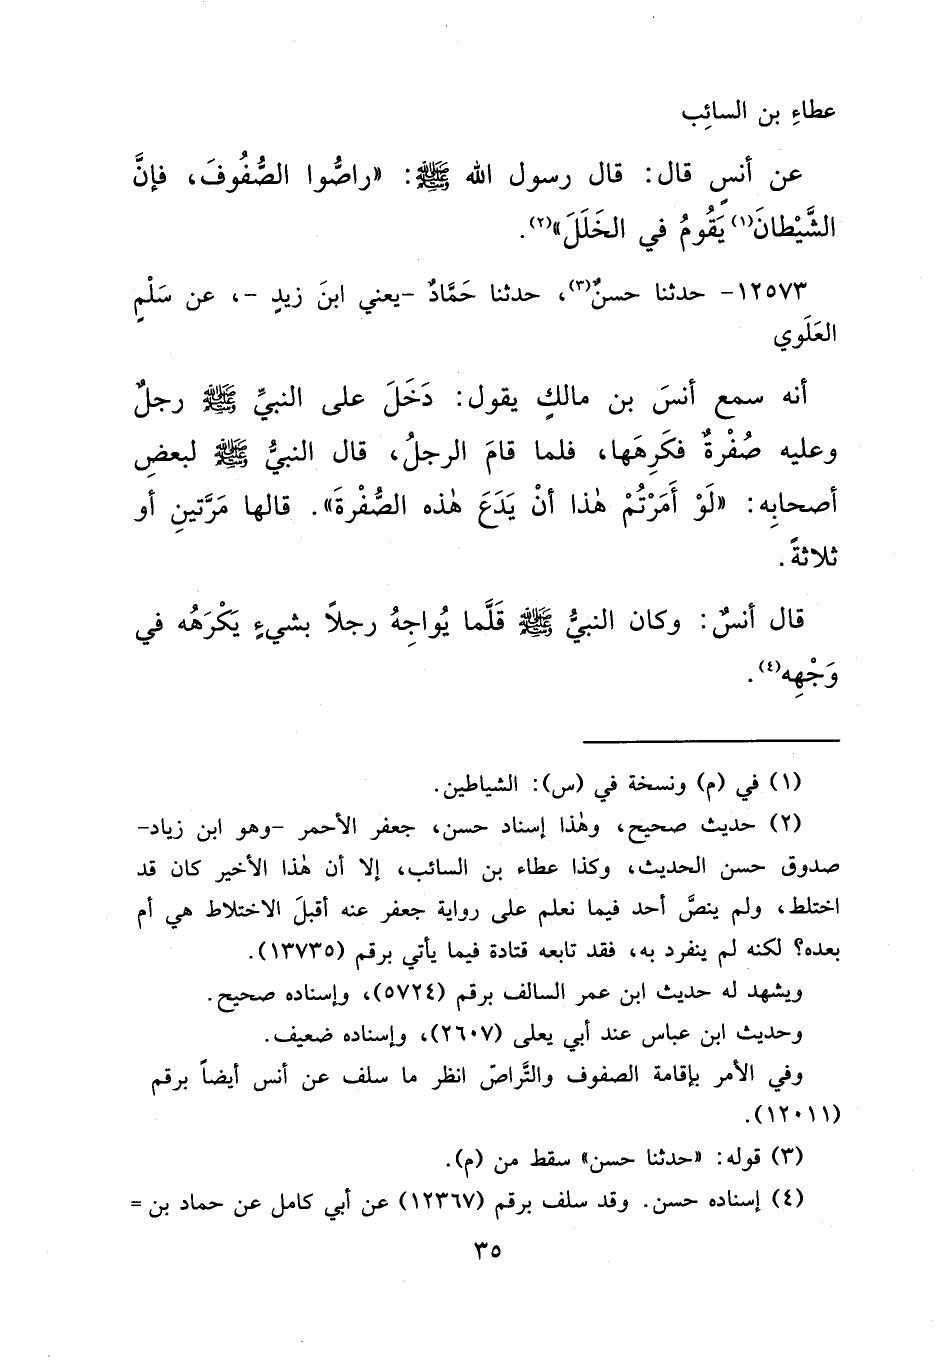 عطاءِ بن السائِب
عن أنسٍ قال: قال رسول الله ﷺ: «راصُّوا الصُّفُوفَ، فإنَّ
الشَّيْطانَ(١) يَقُومُ في الخَلَلَ»(٢).
١٢٥٧٣- حدثنا حسنٌ(٣)، حدثنا حَمَّادٌ -يعني ابنَ زيدٍ -، عن سَلْمٍ
العَلَوي
أنه سمع أنسَ بن مالكٍ يقول: دَخَلَ على النبيِّ ﷺ رجلٌ
وعليه صُفْرةٌ فكَرِهَها، فلما قامَ الرجلُ، قال النبيُّ ﷺ لبعضِ
أصحابِه: «لَوْ أَمَرْتُمْ هٰذا أنْ يَدَعَ هٰذه الصُّفْرةَ». قالها مَرَّتينِ أو
ثلاثةً.
قال أنسٌ: وكان النبيُّ ﷺ قَلَّما يُواجِهُ رجلاً بشيءٍ يَكْرَهُه في
وَجْهِه(٤).
(١) في (م) ونسخة في (س): الشياطين.
(٢) حديث صحيح، وهٰذا إسناد حسن، جعفر الأحمر -وهو ابن زياد-
صدوق حسن الحديث، وكذا عطاء بن السائب، إلا أن هٰذا الأخير كان قد
اختلط، ولم ينصَّ أحد فيما نعلم على رواية جعفر عنه أقبلَ الاختلاط هي أم
بعده؟ لكنه لم ينفرد به، فقد تابعه قتادة فيما يأتي برقم (١٣٧٣٥).
ويشهد له حديث ابن عمر السالف برقم (٥٧٢٤)، وإسناده صحيح.
وحديث ابن عباس عند أبي يعلى (٢٦٠٧)، وإسناده ضعيف.
وفي الأمر بإقامة الصفوف والتَّراصّ انظر ما سلف عن أنس أيضاً برقم
(١٢٠١١).
(٣) قوله: «حدثنا حسن» سقط من (م).
(٤) إسناده حسن. وقد سلف برقم (١٢٣٦٧) عن أبي كامل عن حماد بن =
٣٥